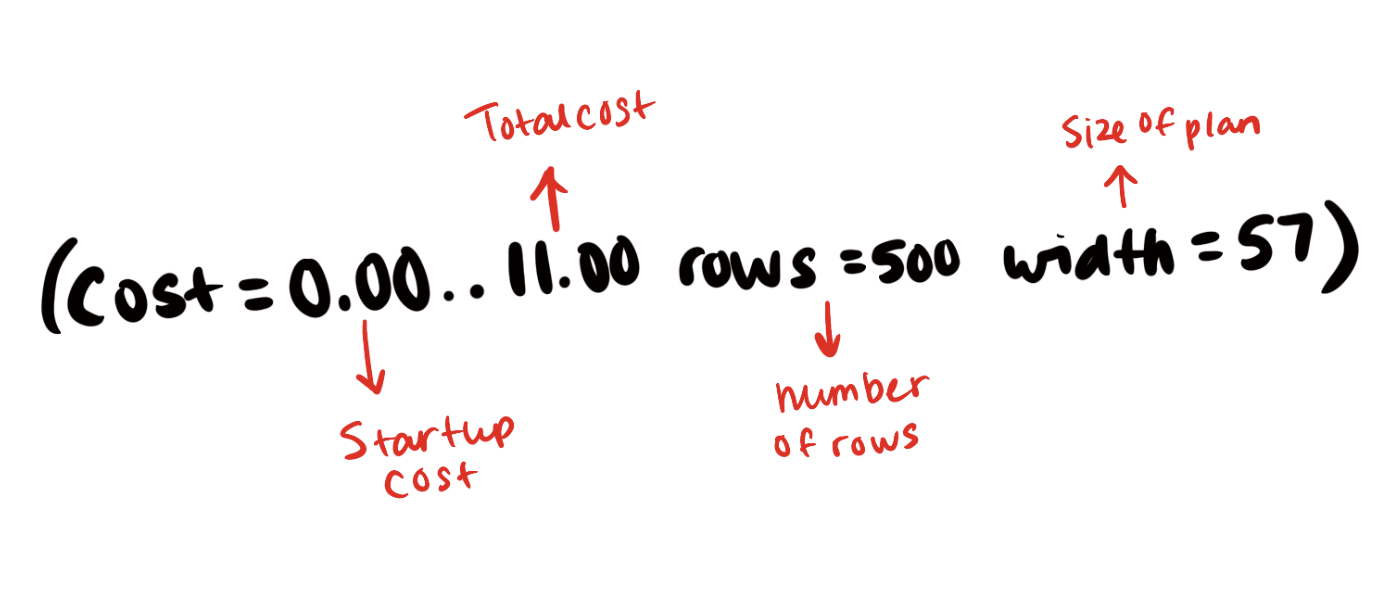 Total cost
Size of plan
(Cost = 0.00.. 11.00 rows =500 width = 57)
Startup
cost
number
of rows